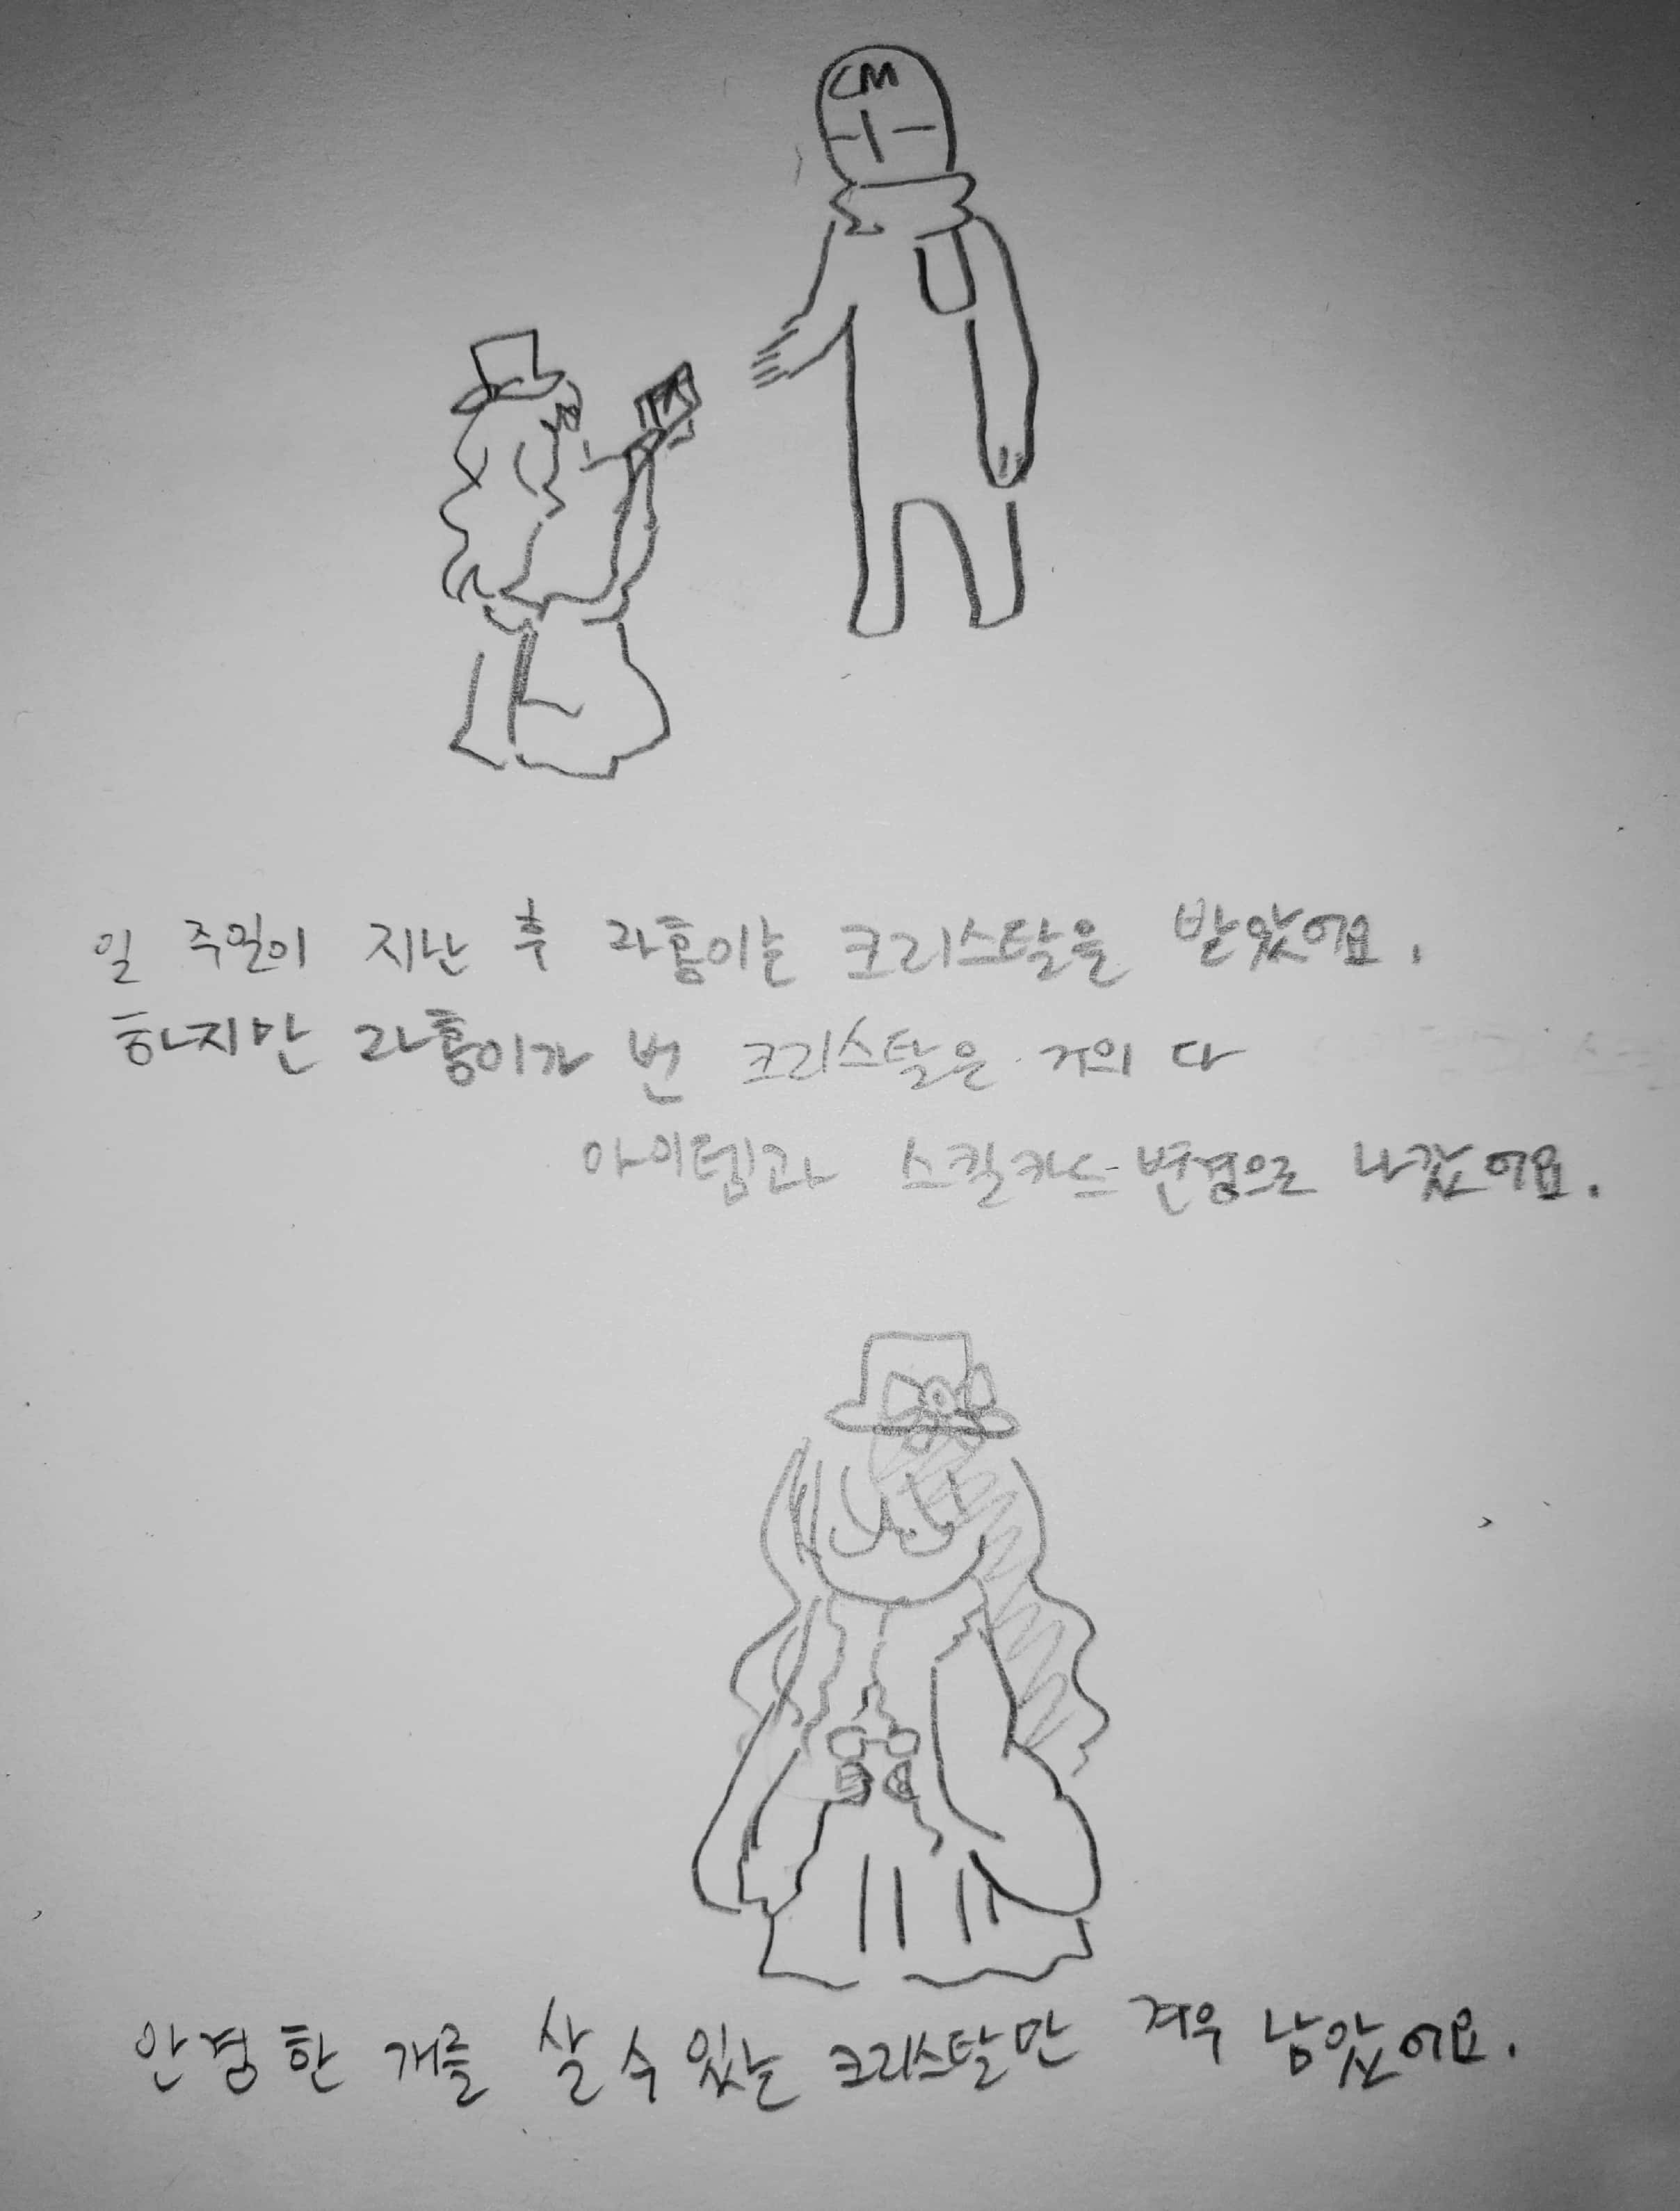 CM
일 주일이 지난 후 라흥이는 크리스탈을 받았어요.
하지만 라흥이가 번 크리스탈은 거의 다
아이템과 스킬카드 변경으로 나갔어요.
안경 한 개를 살 수 있는 크리스탈만 겨우 남았어요.